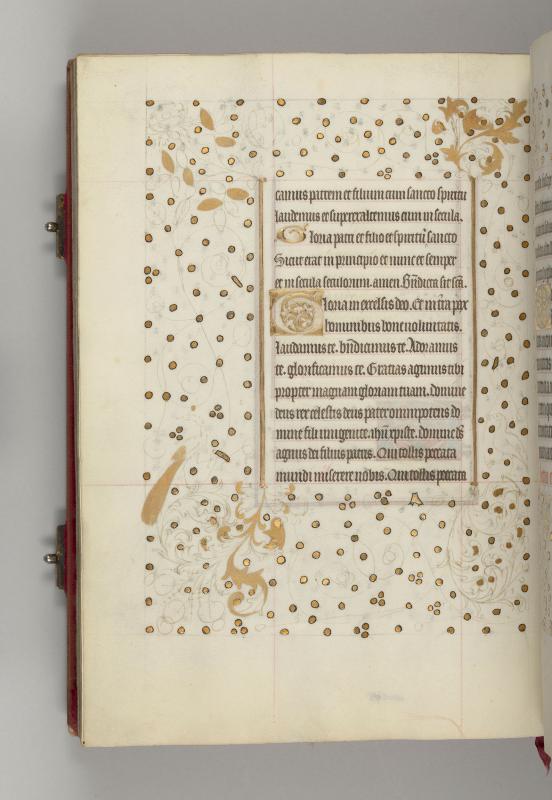 camus patrem et filium cum sancto spiritu
laudemus et superexaltemus eum in secula.
Gloria patri et filio et spiritui sancto
Sicut erat in principio et nunc et semper
et in secula seculorum. amen. Bn̄dicta sit
Gloria in excelsis deo. Et in t̄ra pax
hominibus bone voluntatis.
laudamus te. bn̄dicimus te. Adoramus
te. glorificamus te. Gratias agimus tibi
propter magnam gloriam tuam. domine
deus rex celestis deus pater omnipotens do
mine fili unigenite. ihū xpiste. domine ds̄
agnus dei filius patris. Qui tollis peccata
mundi miserere nobis. Qui tollis peccata